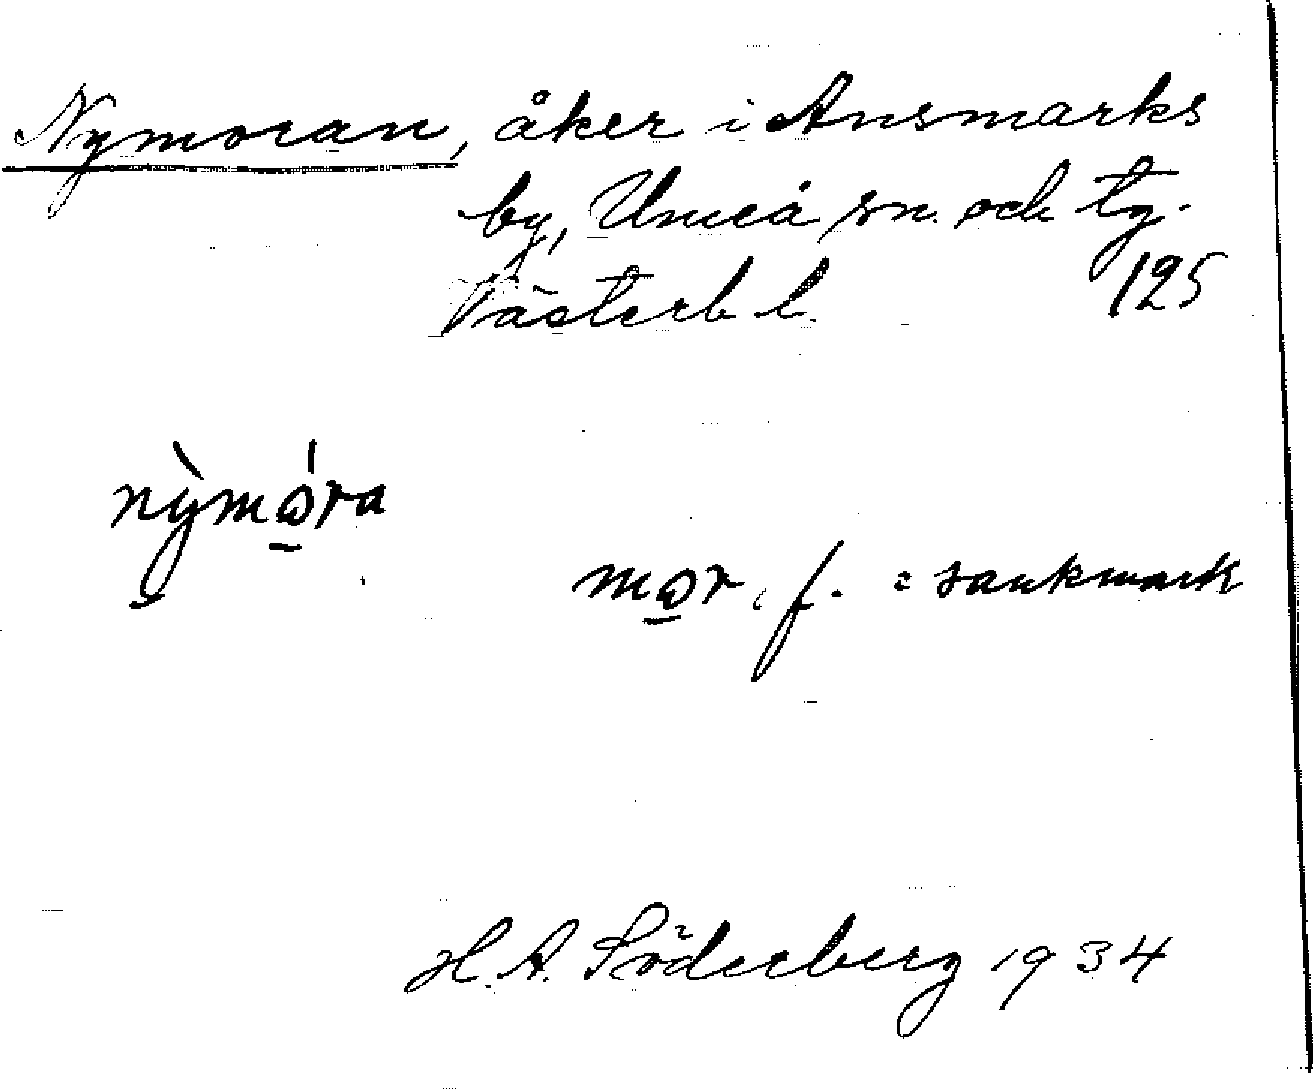 Nymoran, åker i Ansmarks
by, Umeå sn. och tg.
Västerb l. 125
nỳmǫ́ra
mǫr, f. = sankmark
H. A. Söderberg 1934